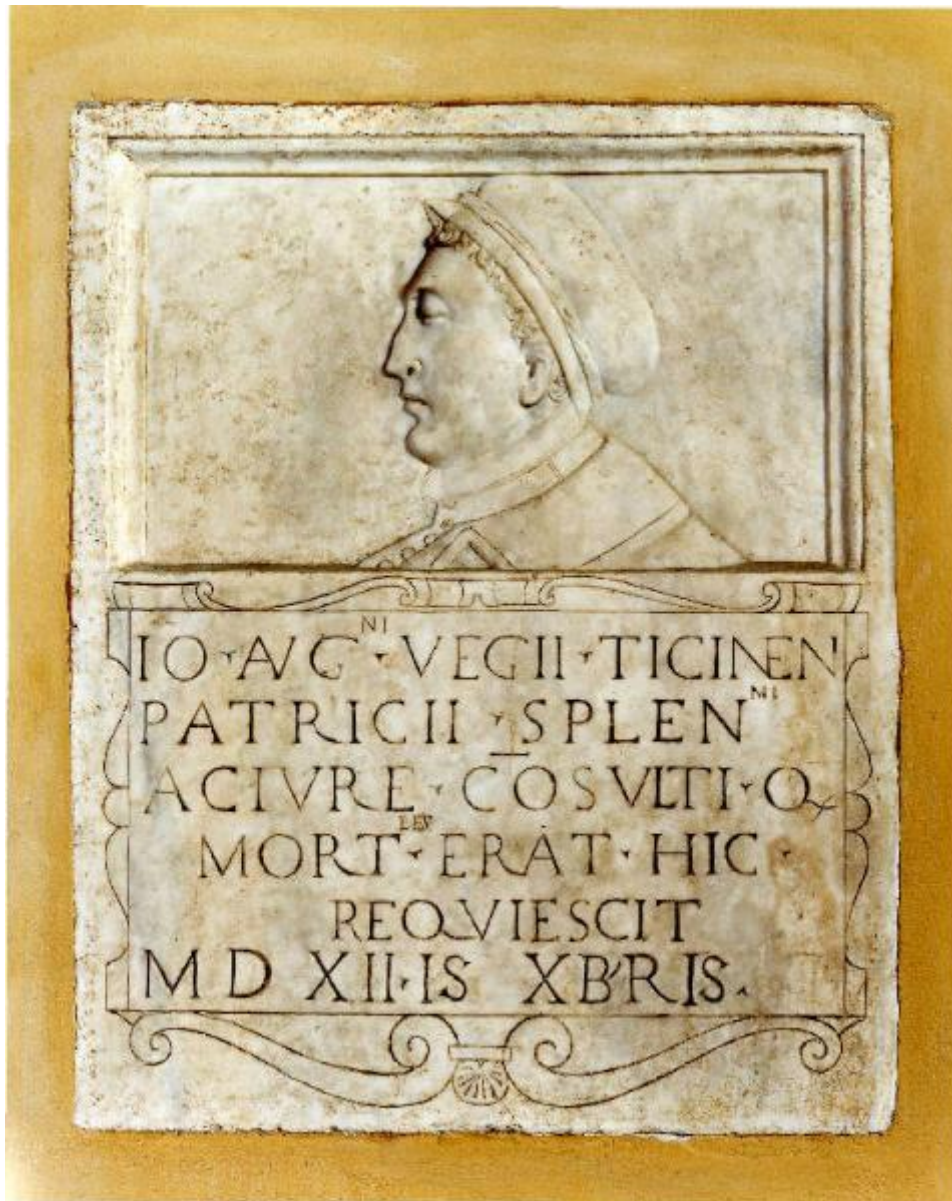 IO · AVG^NI · VEGII · TICINEN
PATRICII · SPLEN^MI
AC IVRE · COSVLTI · Q
MORT^LES · ERAT · HIC ·
REQVIESCIT
MD XII · IS XB'RIS .